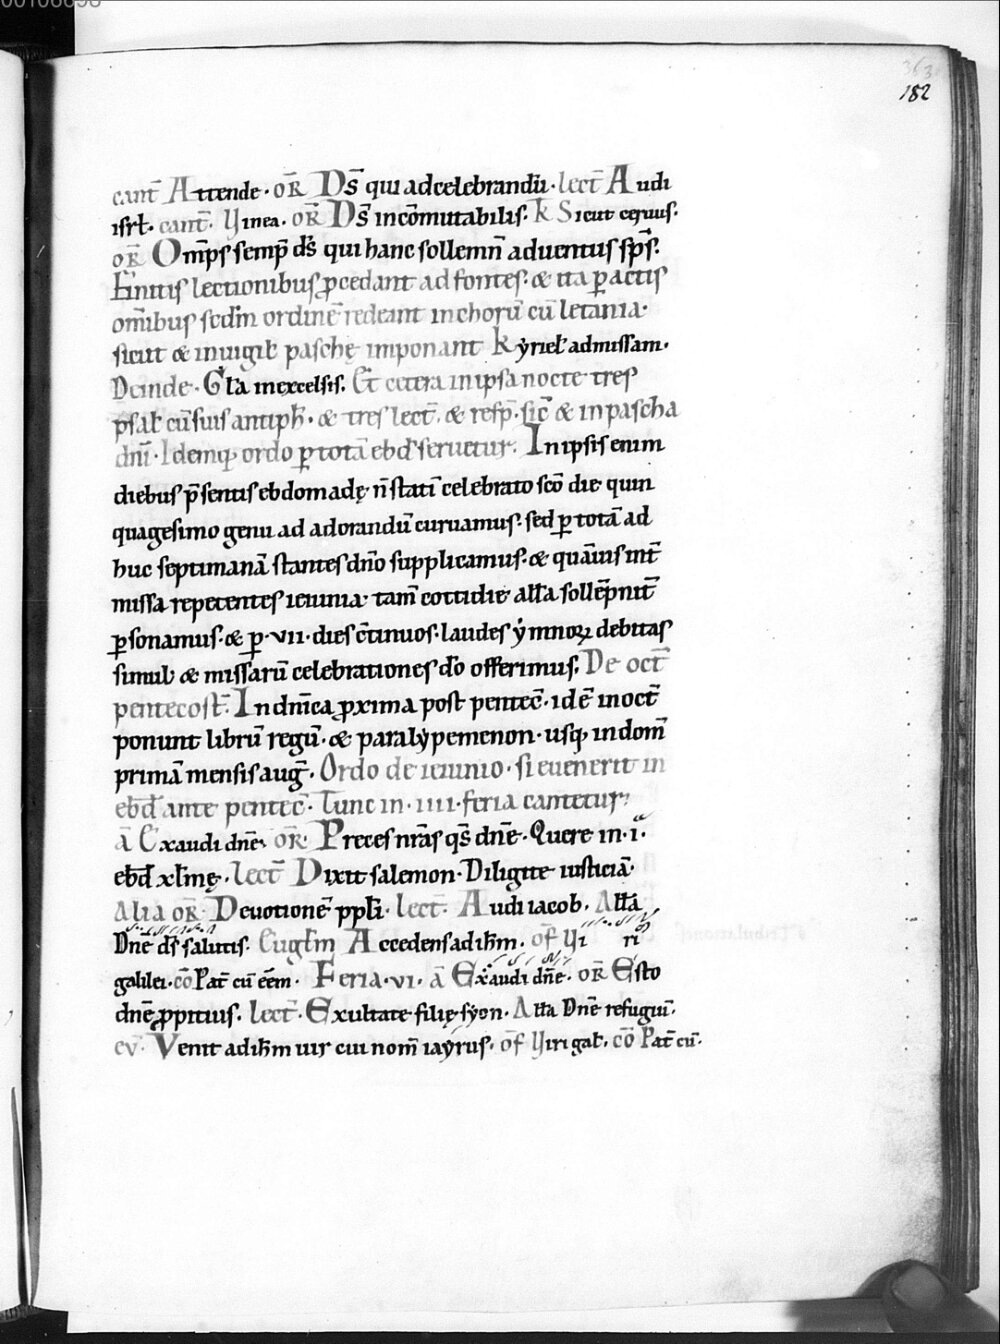 00106698
363
182
cant̄ Attende· or̄ Ds̄ qui ad celebrandū· lect̄ Audi
isrl̄· cant̄· Vinea· or̄ Ds̄ incōmutabilis· k Sicut ceruus·
or̄ Om̄ps semp̄ ds̄ qui hanc sollemn̄ aduentus sp̄s·
Finitis lectionibus ꝓcedant ad fontes· & ita ꝑactis
om̄ibus sedm̄ ordinē redeant in chorū cū letania·
sicut & in uigil̄ paschę imponant Kyriel̄ ad missam·
Deinde· Gl̄a in excelsis· Et cetera in ipsa nocte tres
psal̄ cū suis antiph̄· & tres lect̄· & resp̄· sic̄ & in pascha
dn̄i· Idemq; ordo ꝑ totā ebd̄ seruetur· In ipsis enim
diebus p̄sentis ebdomadę n̄ statī celebrato sc̄o die quin
quagesimo genu ad adorandū curuamus· sed ꝑ totā ad
huc septimanā stantes dn̄o supplicamus· & quāuis int̄
missa repetentes ieiunia· tam̄ cottidie all̄a sollēpnit̄
ꝑsonamus· & ꝑ ·vii· dies c̄tinuos· laudes ymnoꝝ debitas
simul & missarū celebrationes dō offerimus· De oct̄
pentecost̄· In dn̄ica ꝓxima post pentec̄· idē in oct̄
ponunt librū regū· & paralypemenon· usq; in dom̄
primā mensis auḡ· Ordo de ieiunio· si euenerit in
ebd̄ ante pentec̄· Tunc in ·iiii· feria cantetur·
ā Exaudi dn̄e· or̄· Preces nr̄as qs̄ dn̄e· Quere in ·i·
ebd̄ xl̄mę· lect̄ Dixit salemon· Diligite iusticiā·
Alia or̄· Deuotionē ppl̄i· lect̄· Audi iacob· All̄a
Dn̄e ds̄ salutis· Eugl̄m Accedens ad ih̄m· of̄ Vi ri
galilei· cō Pac̄ cū eēm· Feria ·vi· ā Exaudi dn̄e· or̄ Esto
dn̄e ꝓpitius· lect̄· Exultate filię syon· All̄a Dn̄e refugiū·
ev̄· Venit ad ih̄m uir cui nom̄ iayrus· of̄ Viri gal̄· cō Pac̄ cū·